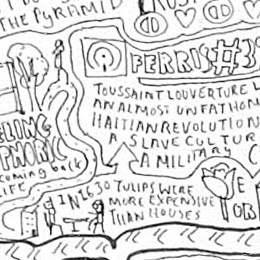 THE PYRAMID
FERRIS #3
TOUSSAINT LOUVERTURE
AN ALMOST UNFATHOM
HAITIAN REVOLUTION
A SLAVE CULTUR
A MILITARY
ELING
PHORIC
coming back
LIFE
IN 1630 TULIPS WERE
MORE EXPENSIVE
THAN HOUSES